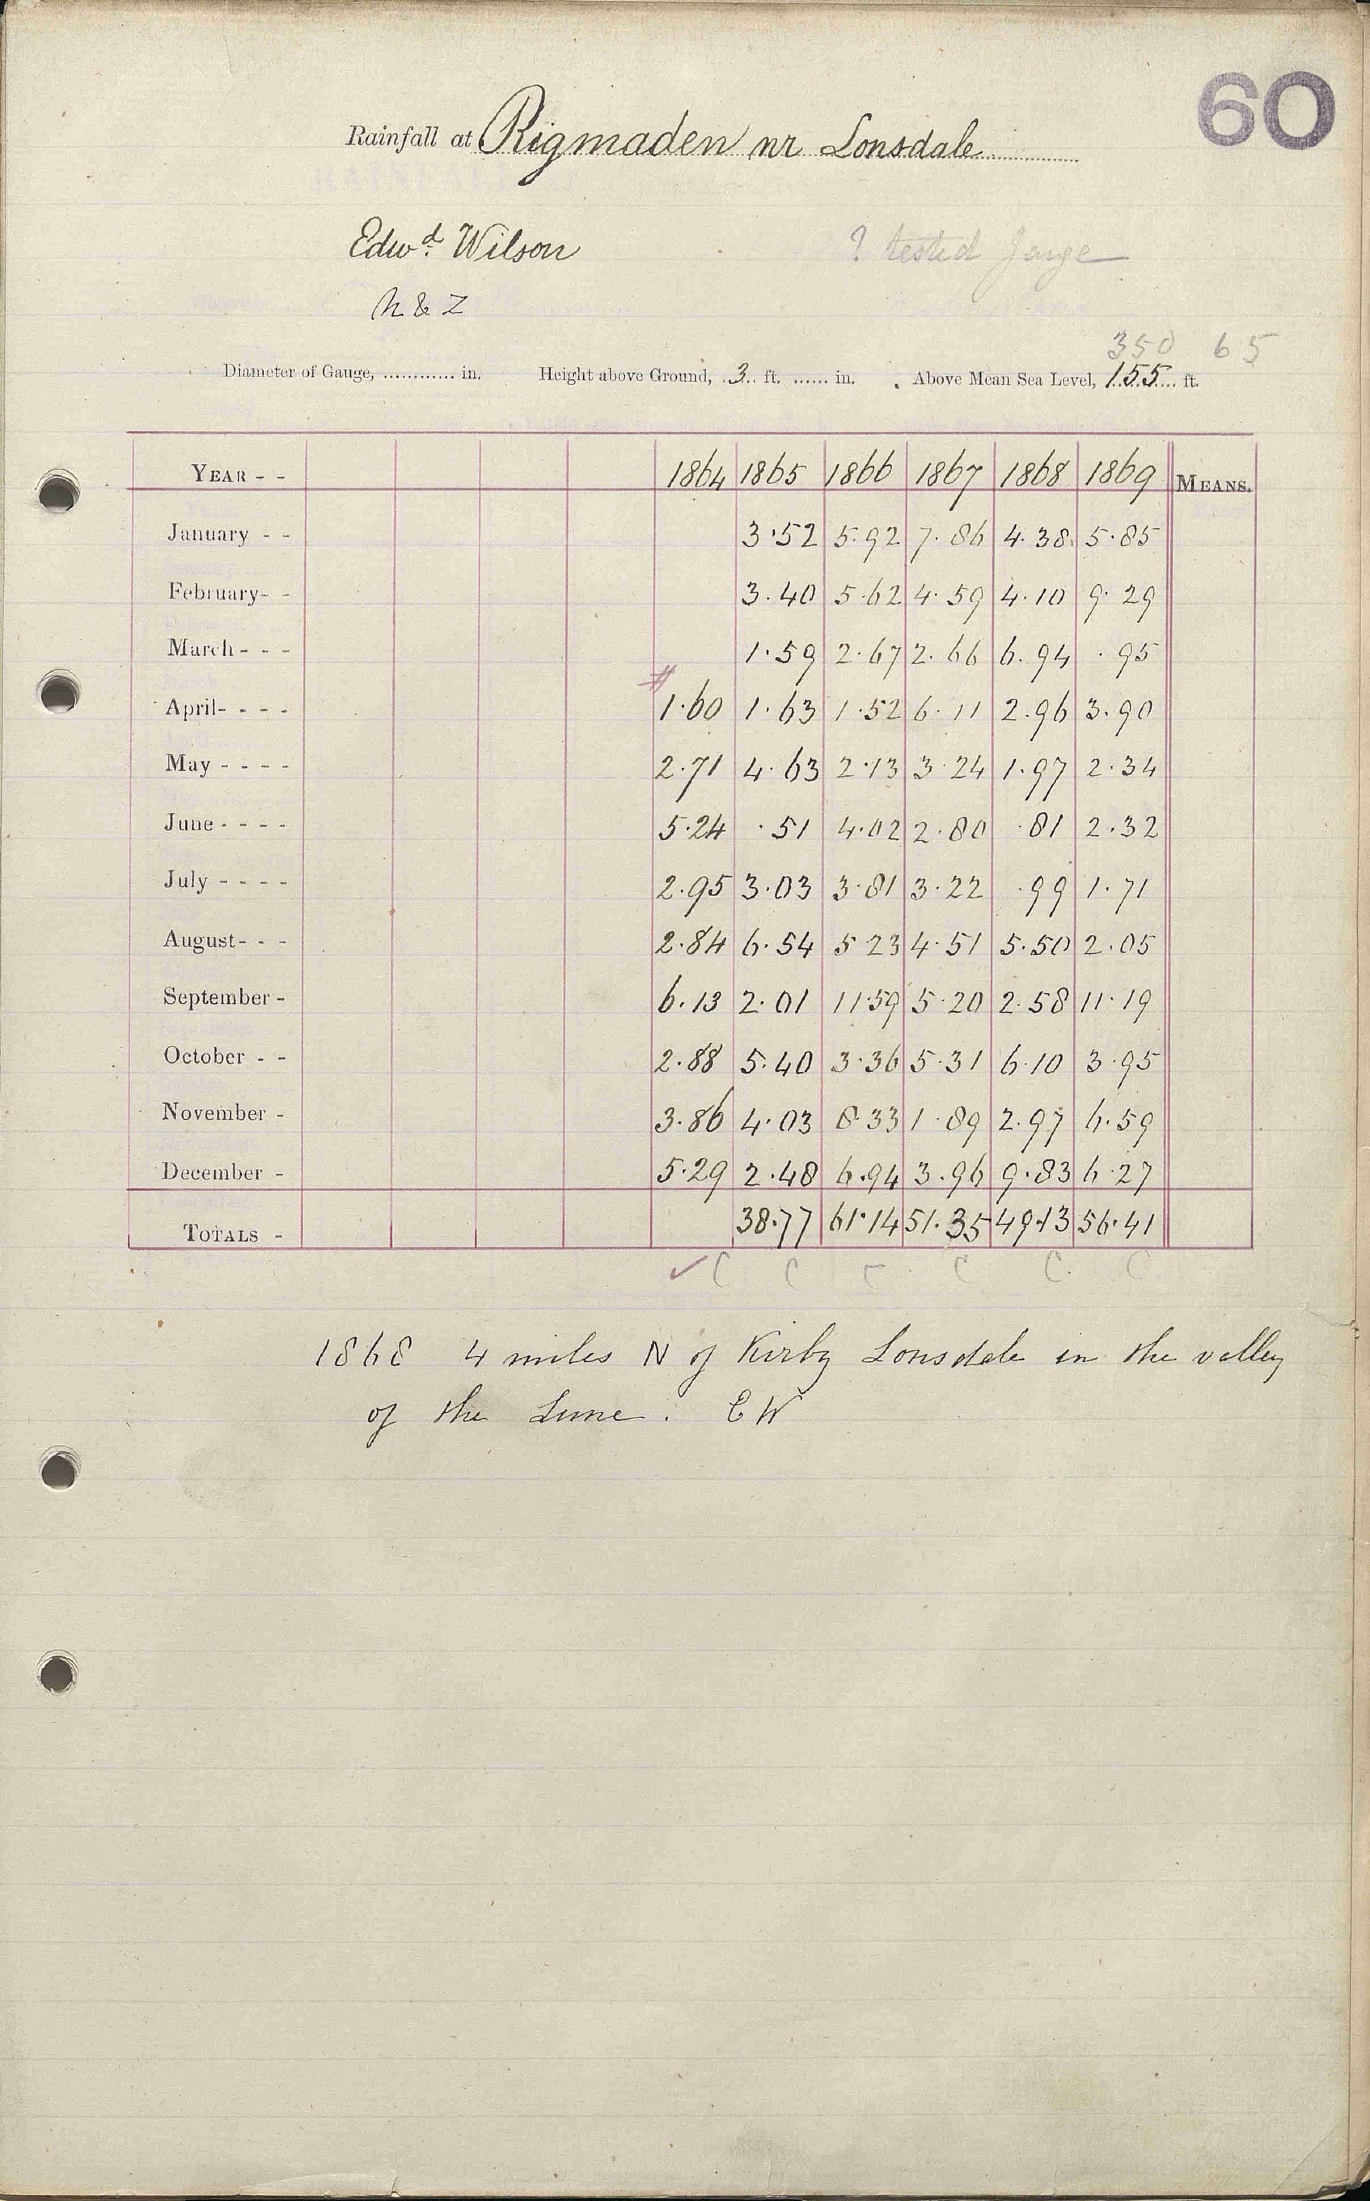 60
Rainfall at Rigmaden nr Lonsdale
Edwd. Wilson ? tested Gauge
N & Z
350 65
Diameter of Gauge, ............ in. Height above Ground, 3 ft. ...... in. Above Mean Sea Level, 155 ft.
YEAR - - 1864 1865 1866 1867 1868 1869 MEANS.
January - - 3.52 5.92 7.86 4.38 5.85
February - - 3.40 5.62 4.59 4.10 9.29
March - - - 1.59 2.67 2.66 6.94 .95
April - - - - 1.60 1.63 1.52 6.11 2.96 3.90
May - - - - 2.71 4.63 2.13 3.24 1.97 2.34
June - - - - 5.24 .51 4.02 2.80 .81 2.32
July - - - - 2.95 3.03 3.81 3.22 .99 1.71
August - - - 2.84 6.54 5.23 4.51 5.50 2.05
September - 6.13 2.01 11.59 5.20 2.58 11.19
October - - 2.88 5.40 3.36 5.31 6.10 3.95
November - 3.86 4.03 8.33 1.89 2.97 6.59
December - 5.29 2.48 6.94 3.96 9.83 6.27
TOTALS - 38.77 61.14 51.35 49.13 56.41
✓ C C C C C C
1868 4 miles N of Kirby Lonsdale in the valley
of the Lune. EW